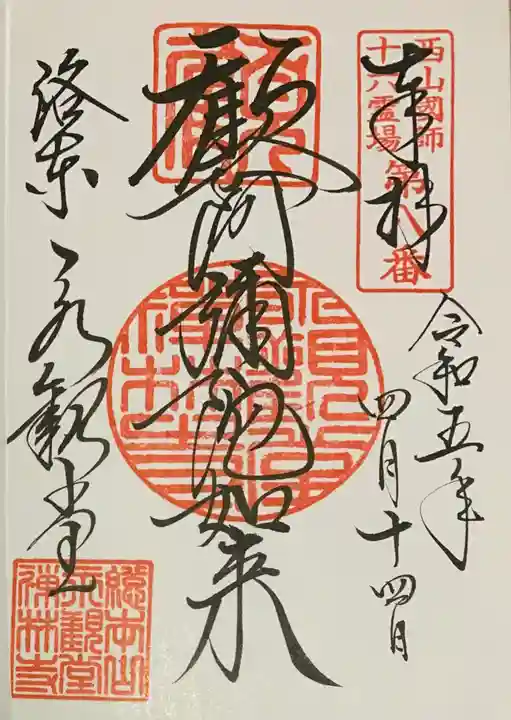 西山國師
十六霊場
第八番
奉拝
令和五年
四月十四日
顧阿彌陀如来
洛東 永観堂
總本山
永觀堂
禪林寺